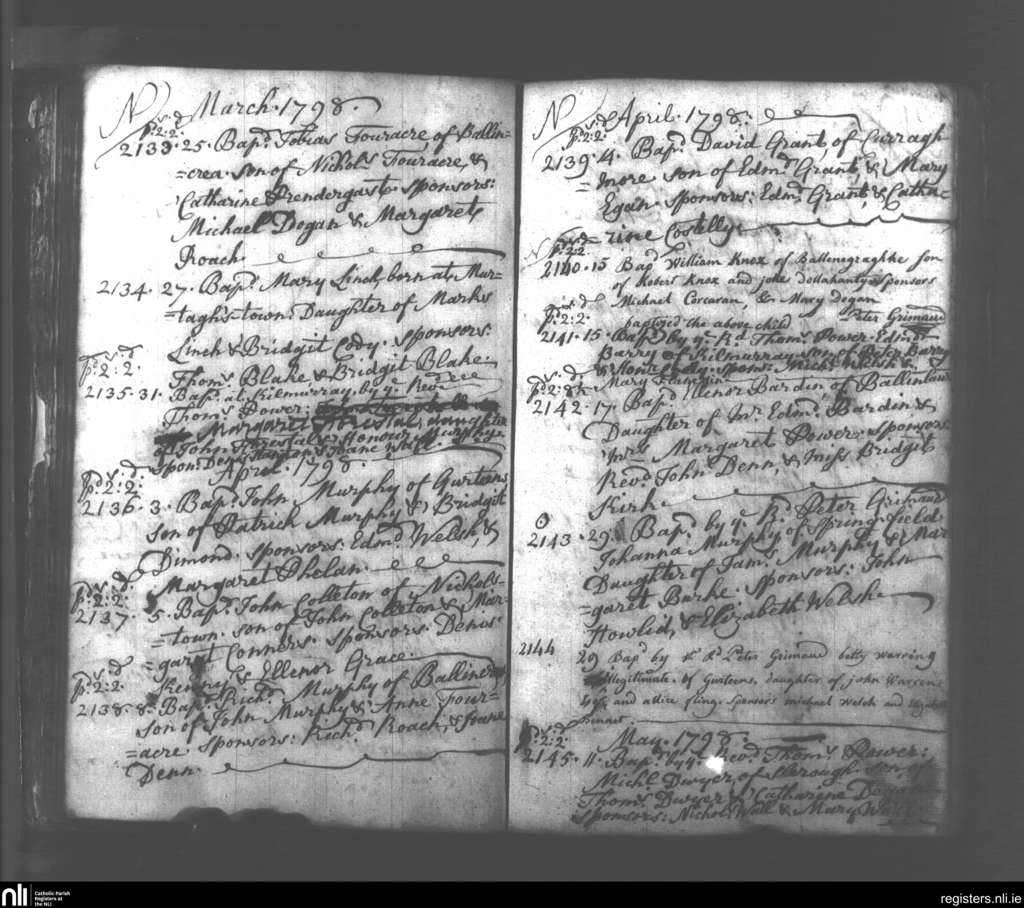 N March. 1798.
s. d
pd. 2: 2.
2133. 25. Bapd. Tobias Fouracre, of Ballin=
=crea. son of Nichols. Fouracre, &
Catharine Prendergast. sponsors:
Michael Dogan & Margaret
Roach.
2134. 27. Bapd. Mary Linch, born at Mur=
=tagh's=town. Daughter of Marks
Linch & Bridgit Cody. sponsors:
Thoms. Blake & Bridgit Blake
s. d.
pd. 2: 2.
2135. 31. Bapd. at Kilmurray, by ye. Revd.
Thoms. Power:
Margaret Forestal, daughter
of John Forestal & Honour Murphy
spon: Denis &
April. 1798.
s. d.
pd. 2: 2.
2136. 3. Bapd. John Murphy of Gurteens
son of Patrick Murphy & Bridgit
Dimond. sponsors: Edmd. Welsh, &
Margaret Phelan.
s. d.
pd. 2: 2.
2137. 5. Bapd. John Colleton of Nichols=
=town. son of John Colleton & Mar=
=garet Conners. sponsors: Denis
& Ellenor Grace.
s. d
pd. 2: 2.
2138. 8. Bapd. Richd. Murphy of Ballincrea
son of John Murphy & Anne Four=
=acre. sponsors: Richd. Roach, & Joane
Denn.
N April. 1798.
s. d
pd. 2: 2.
2139. 4. Bapd. David Grant, of Curragh
=more son of Edmd. Grant, & Mary
Egan. sponsors: Edmd. Grant, & Catha=
=rine Costelly
s. d
pd. 2: 2.
2140. 15 Bapd William Knox of Ballenagraghke son
of Robert Knox and Sponsors
Michael Corcoran, & Mary Dogan
baptized the above child Peter Grimaud
s. d
pd. 2: 2.
2141. 15. Bapd. by ye. Rd. Thoms. Power. Edmd.
Barry of Kilmurray. son of Peter Barry
& spons: Michl. Walsh &
Mary
s. d.
pd. 2: 8½
2142. 17. Bapd. Elinor Bardin, of Ballinlaw
Daughter of Mr. Edmd. Bardin &
Mrs. Margaret Power. sponsors
Revd. John Denn, & Miss Bridgit
Kirk
0
2143. 29. Bapd. by ye. Rd. Peter Grimaud
Johanna Murphy of Springfield.
Daughter of Jams. Murphy & Mar
=garet Burke. sponsors: John
Howlid, & Elizabeth Welsh
2144 29 Bapd by Rd Peter Grimaud betty warring
illegitimate, of Gurteens, daughter of john Warren
and allice fling. sponsors michael Welch and Elizabeth
Sennet.
s. d
pd. 2: 2.
May. 1798.
2145. 11. Bapd. by ye. Revd. Thoms. Power:
Michl. Dwyer, of Slerough. son of
Thoms. Dwyer & Catharine
sponsors: Nichol. Wall & Mary
nli
Catholic Parish
Registers at
the NLI
registers.nli.ie